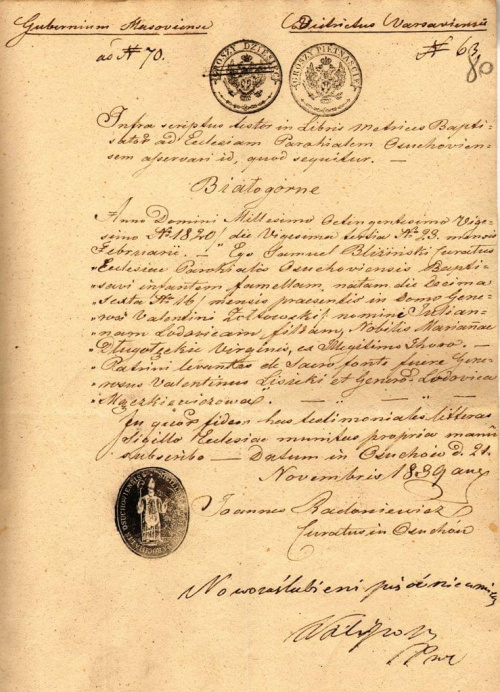 Gubernium Masoviense Districtus Varsaviensis
ad N 70. N 63
80
GROSZY DZIESIĘĆ GROSZY PIĘTNAŚCIE
Infra scriptus testor in Libris Metrices Bapti-
ad Eclesiam Parochialem Osuchovien-
sem aservari id, quod sequitur. —
Białogórne
Anno Domini Millesimo Octingentesimo Vige-
simo No 1820/ die Vigesima tertia No 23. mensis
Februarii. Ego Samuel Bliziński curatus
Eclesiae Parochialis Osuchoviensis Bapti-
savi infantem famellam, natam die Decima
Sexta No 16/ mensis praesentis in Domo Gene-
rosi Valentini nomine Julian-
nam Lodovicam, filiam, Nobilis Mariannae
Virginis, ex Illegitimo Thoro. —
Patrini levantes de Sacro fonte fuere Gene-
rosus Valentinus Lisicki et Generosa Lodovica
Mączkiewiczowa. —
In quor fidem has testimoniales litteras
Sigillo Ecclesiae munitas propria manu
subscribo — Datum in Osuchów d. 21.
Novembris 1839
Joannes Radoniewicz
Curatus in Osuchów
Noworaślubieni